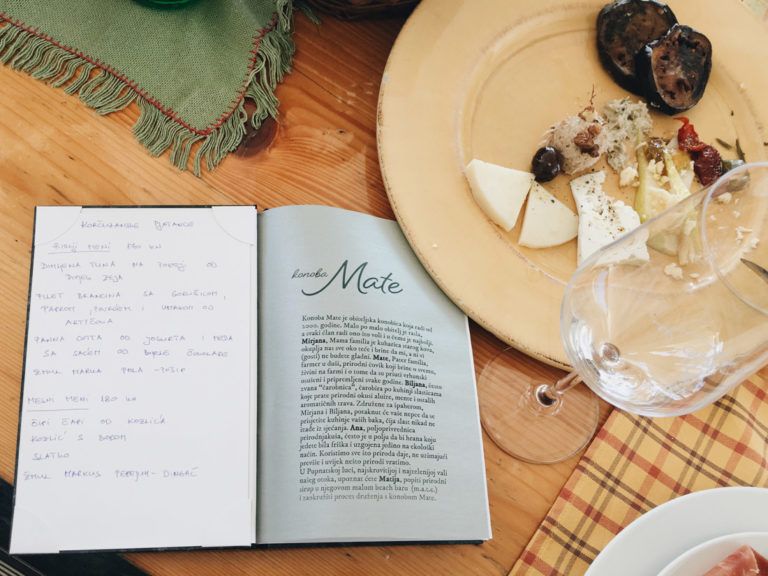 KORČULANSKE PJATANCE
RIBLJI MENI 180 KN
DIMLJENA TUNA NA
OD
FILET BRANCINA SA
I UMAKOM OD
ARTIČOKA
PANNA COTTA OD JOGURTA I MEDA
SA OD
MESNI MENI 180 KN
OD KOZLIĆA
KOZLIĆ S BOBOM
SLATKO
DINGAČ
konoba Mate
Konoba Mate je obiteljska konobica koja radi od
2000. godine. Malo po malo obitelj je rasla,
a svaki član radi ono što voli i u čemu je najbolji.
Mirjana, Mama familia je kuharica starog kova,
okuplja nas sve oko teće i brine da mi, a ni vi
(gosti) ne budete gladni. Mate, Pater familia,
farmer u duši, prirodni čovik koji brine o svemu,
živini na farmi i o tome da su pršuti vrhunski
osušeni i pripremljeni svake godine. Biljana, često
zvana "čarobnica", čarobira po kuhinji slasticama
koje prate prirodni okusi aluite, mente i ostalih
aromatičnih trava. Združene za špaherom,
Mirjana i Biljana, potaknut će vaše nepce da se
prisjetite kuhinje vaših baka, čija slast nikad ne
izade iz sjećanja. Ana, poljoprivrednica
prirodnjakuša, često je u polju da bi hrana koju
jedete bila friška i uzgojena jedino na ekološki
način. Koristimo sve što priroda daje, ne uzimajući
previše i uvijek nešto prirodi vratimo.
U Pupnatskoj luci, najskrovitijoj i najzelenijoj vali
našeg otoka, upoznat ćete Matija, popiti prirodni
sirup u njegovom malom beach baru (m.a.t.e.)
i zaokružiti proces druženja s konobom Mate.